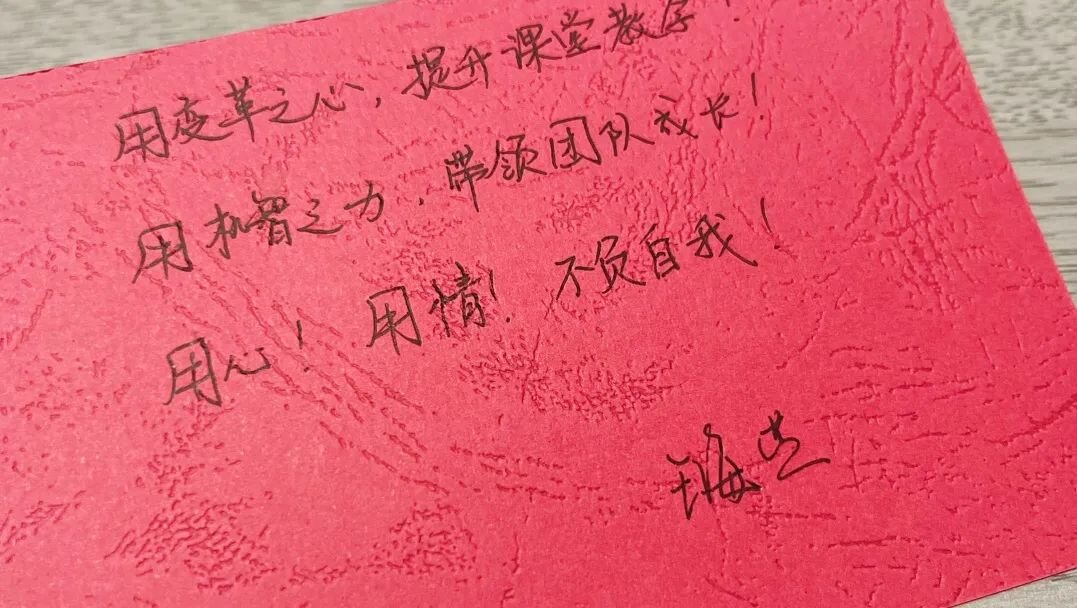 用变革之心，提升课堂教学！
用机智之力，带领团队成长！
用心！用情！不负自我！